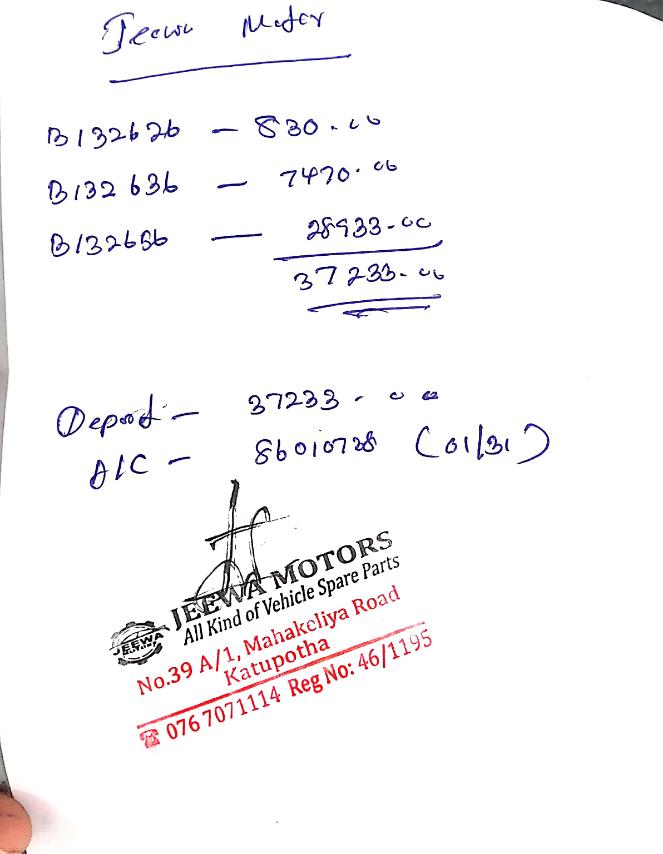 Jeewa Motor
B132626 - 830.00
B132636 - 7470.00
B132656 - 28933-00
37233-00
Deposit - 37233-00
A/C - 86010728 (01/31)
JEEWA MOTORS
All Kind of Vehicle Spare Parts
JEEWA
No.39 A/1, Mahakeliya Road
Katupotha
☎ 076 7071114 Reg No: 46/1195